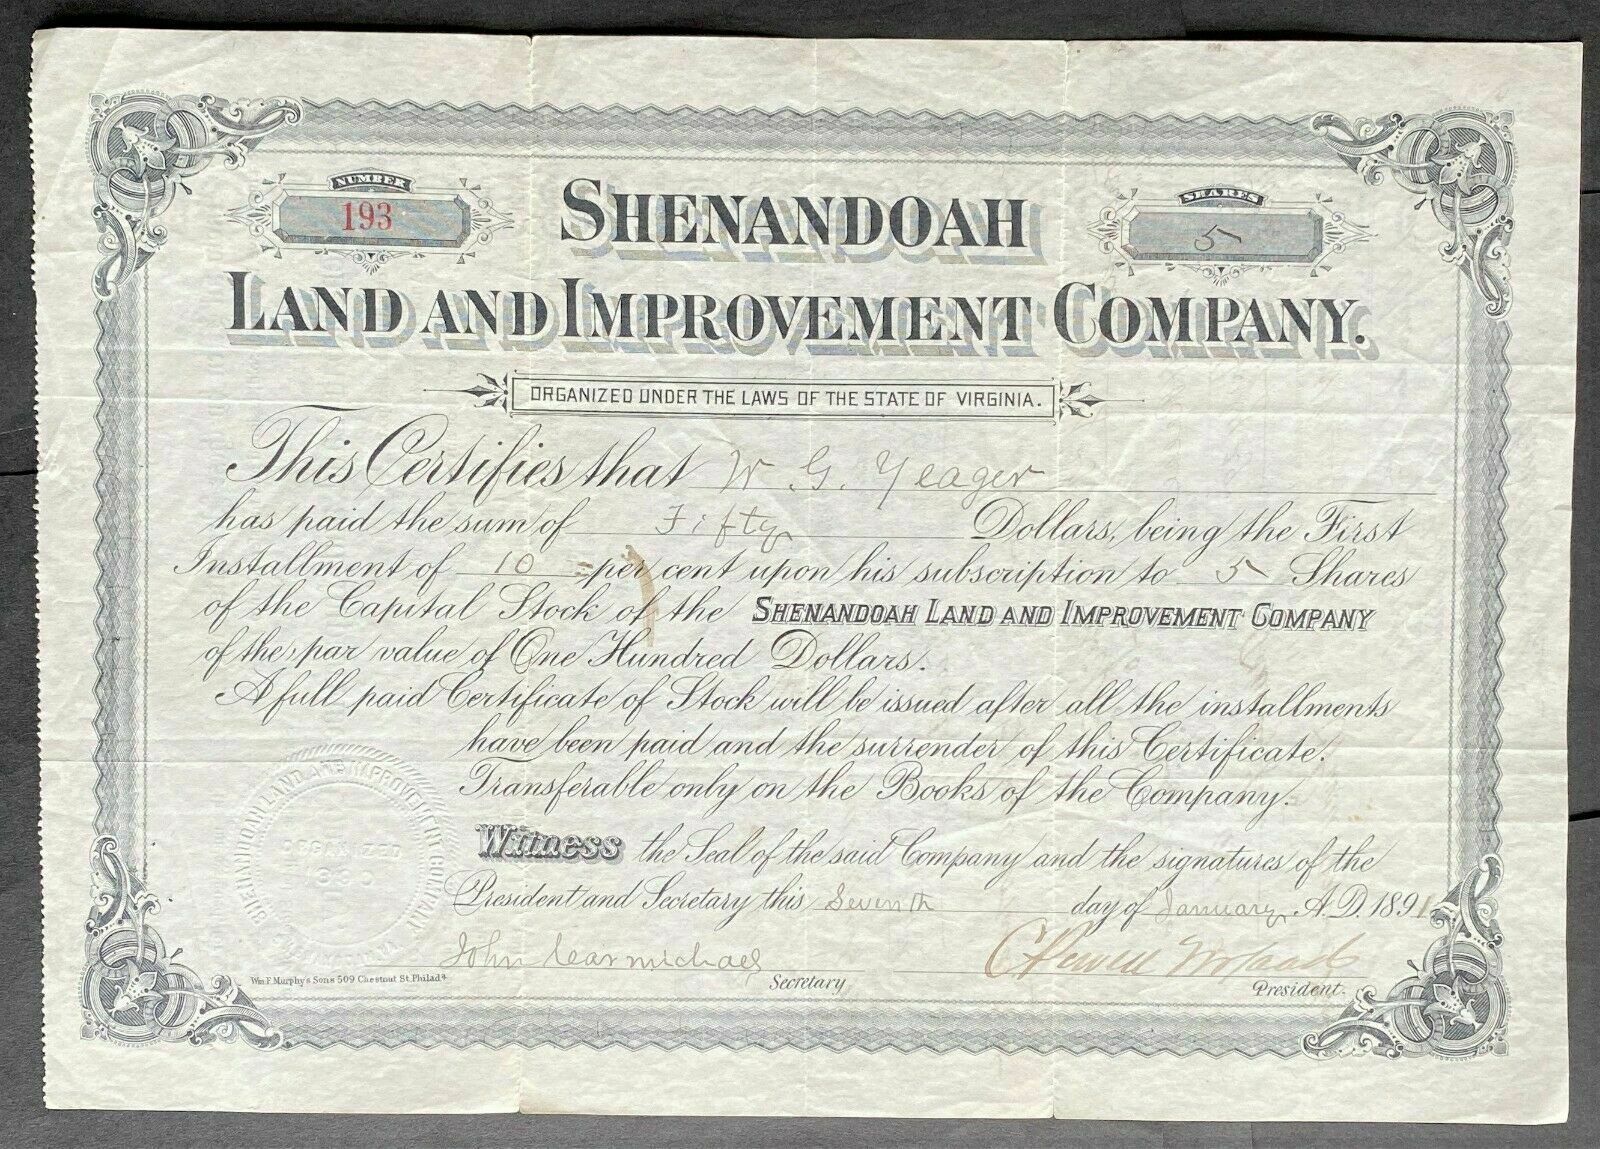 NUMBER
193
SHENANDOAH
SHARES
5
LAND AND IMPROVEMENT COMPANY.
ORGANIZED UNDER THE LAWS OF THE STATE OF VIRGINIA.
This Certifies that W. G. Yeager
has paid the sum of Fifty Dollars, being the First
Installment of 10 per cent upon his subscription to 5 Shares
of the Capital Stock of the SHENANDOAH LAND AND IMPROVEMENT COMPANY
of the par value of One Hundred Dollars.
A full paid Certificate of Stock will be issued after all the installments
have been paid and the surrender of this Certificate.
Transferable only on the Books of the Company.
Witness the Seal of the said Company and the signatures of the
President and Secretary this Seventh day of January A.D. 1891
John Carmichael
Secretary
President.
Wm. F. Murphy's Sons 509 Chestnut St. Philada
SHENANDOAH LAND AND IMPROVEMENT COMPANY
ORGANIZED